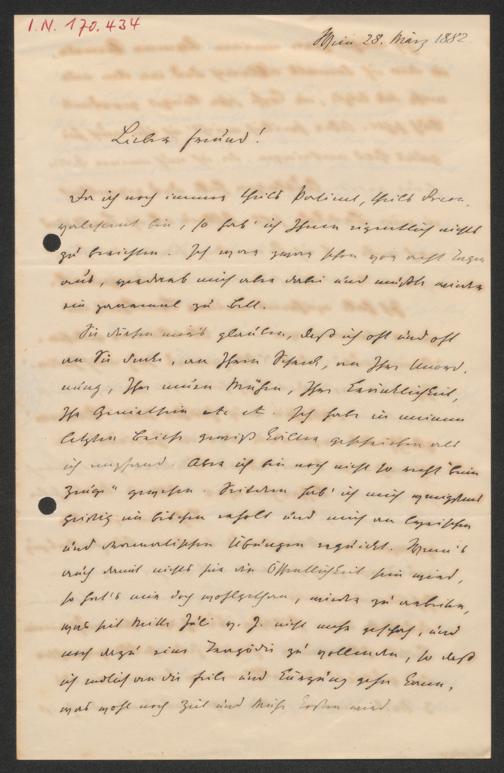 I.N. 170.434
Wien 28. März 1882.
Lieber Freund!
Da ich noch immer theils Patient, theils Recon-
valescent bin, so hab' ich Ihnen eigentlich nichts
zu berichten. Ich war zwar schon vor acht Tagen
aus, verdarb mich aber dabei und mußte wieder
ein paarmal zu Bett.
Sie dürfen mir's glauben, daß ich oft und oft
an Sie denke, an Ihren Schreck, an Ihre Unord-
nung, Ihre Mühen, Ihre Kränklichkeit,
Ihr etc etc. Ich habe in meinem
letzten Briefe gewiß kälter geschrieben als
ich empfand. Aber ich bin noch nicht so recht "beim
Zeuge" gewesen. Seitdem hab' ich mich wenigstens
geistig ein bischen erholt und mich an lyrischen
und dramatischen Übungen erquickt. Wenn's
auch damit nichts für die Öffentlichkeit sein wird,
so hat's mir doch wohlgethan, wieder zu arbeiten,
was seit Mitte Juli v. J. nicht mehr geschah, und
noch dazu eine Tragödie zu vollenden, so daß
ich endlich an die Feile und Kürzung gehen kann,
was wohl noch Zeit und Mühe kosten wird.